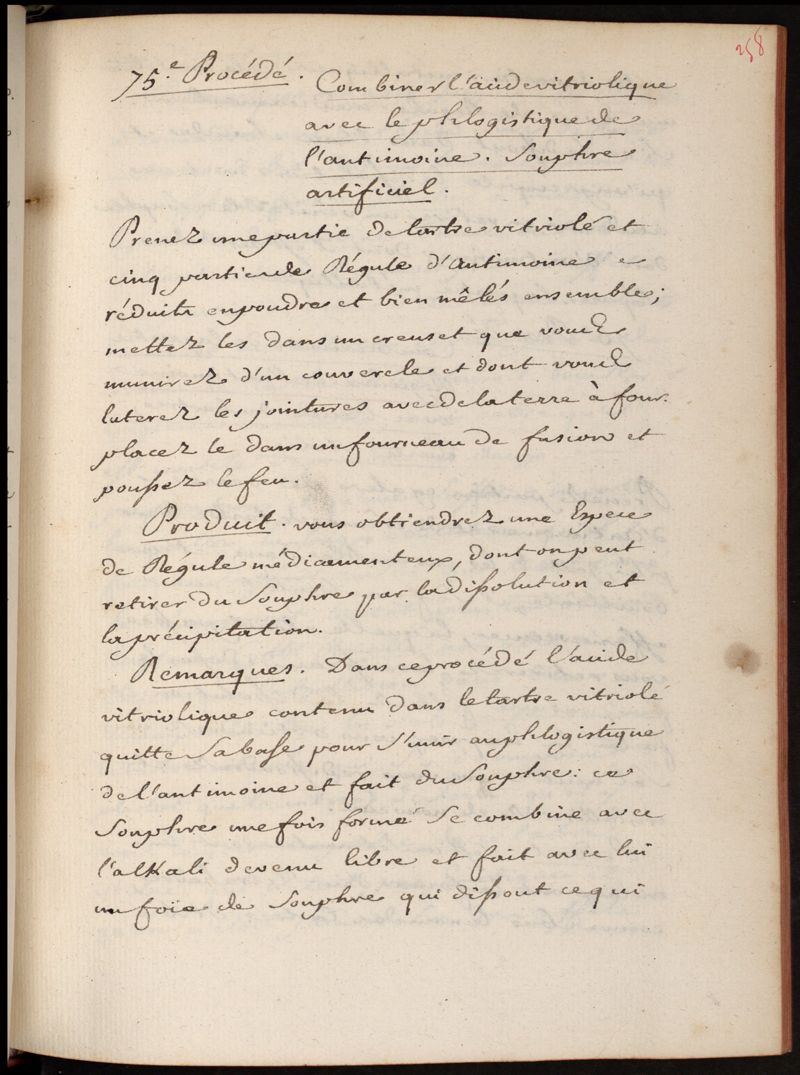 258
75.e Procédé. Combiner l'acide vitriolique
avec le phlogistique de
l'antimoine. Souphre
artificiel.
Prenez une partie de tartre vitriolé et
cinq parties de Régule d'Antimoine
réduits en poudre et bien mêlés ensemble;
mettez les dans un creuset que vous
munirez d'un couvercle et dont vous
luterez les jointures avec de la terre à four.
placez le dans un fourneau de fusion et
poussez le feu.
Produit. vous obtiendrez une Espece
de Régule médicamenteux, dont on peut
retirer du Souphre par la dissolution et
la précipitation.
Remarques. Dans ce procédé l'acide
vitriolique contenu dans le tartre vitriolé
quitte Sa base pour S'unir au phlogistique
de l'antimoine et fait du Souphre: ce
Souphre une fois formé Se combine avec
l'alKali devenu libre et fait avec lui
un foie de Souphre qui dissout ce qui